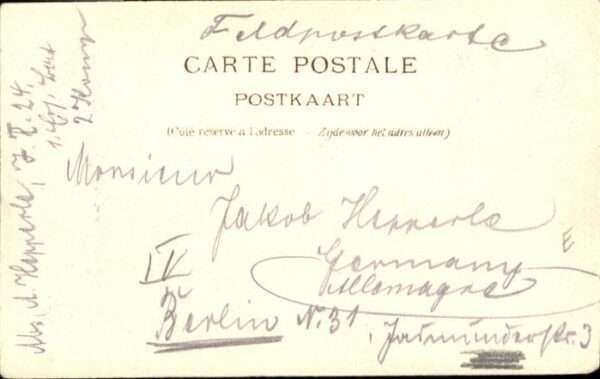 Feldpostkarte
CARTE POSTALE
POSTKAART
(Côté réservé à l'adresse – Zijde voor het adres alleen)
Monsieur
Jakob Hepperle
Germany
Allemagne
IV
Berlin N. 31
Jasmunderstr. 3
E
Abs. A. Hepperle, J. R. 24.
1. Ers. Bat
2 Komp